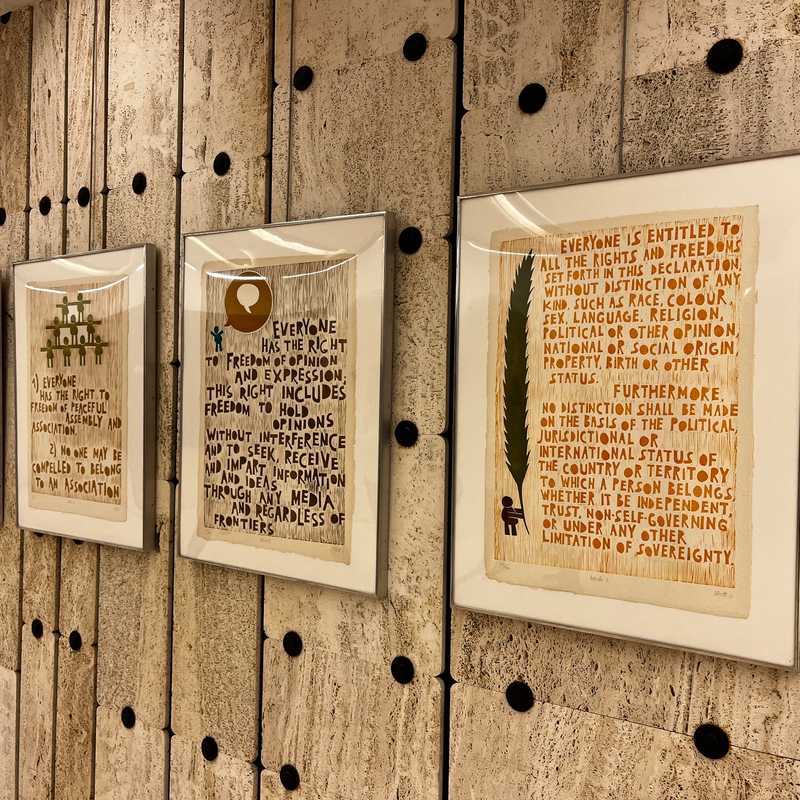 1) EVERYONE
HAS THE RIGHT TO
FREEDOM OF PEACEFUL
ASSEMBLY AND
ASSOCIATION.
2) NO ONE MAY BE
COMPELLED TO BELONG
TO AN ASSOCIATION
EVERYONE
HAS THE RIGHT
TO FREEDOM OF OPINION
AND EXPRESSION;
THIS RIGHT INCLUDES
FREEDOM TO HOLD
OPINIONS
WITHOUT INTERFERENCE
AND TO SEEK, RECEIVE
AND IMPART INFORMATION
AND IDEAS
THROUGH ANY MEDIA
AND REGARDLESS OF
FRONTIERS
EVERYONE IS ENTITLED TO
ALL THE RIGHTS AND FREEDOMS
SET FORTH IN THIS DECLARATION,
WITHOUT DISTINCTION OF ANY
KIND, SUCH AS RACE, COLOUR,
SEX, LANGUAGE, RELIGION,
POLITICAL OR OTHER OPINION,
NATIONAL OR SOCIAL ORIGIN,
PROPERTY, BIRTH OR OTHER
STATUS.
FURTHERMORE,
NO DISTINCTION SHALL BE MADE
ON THE BASIS OF THE POLITICAL,
JURISDICTIONAL OR
INTERNATIONAL STATUS OF
THE COUNTRY OR TERRITORY
TO WHICH A PERSON BELONGS,
WHETHER IT BE INDEPENDENT,
TRUST, NON-SELF-GOVERNING
OR UNDER ANY OTHER
LIMITATION OF SOVEREIGNTY.